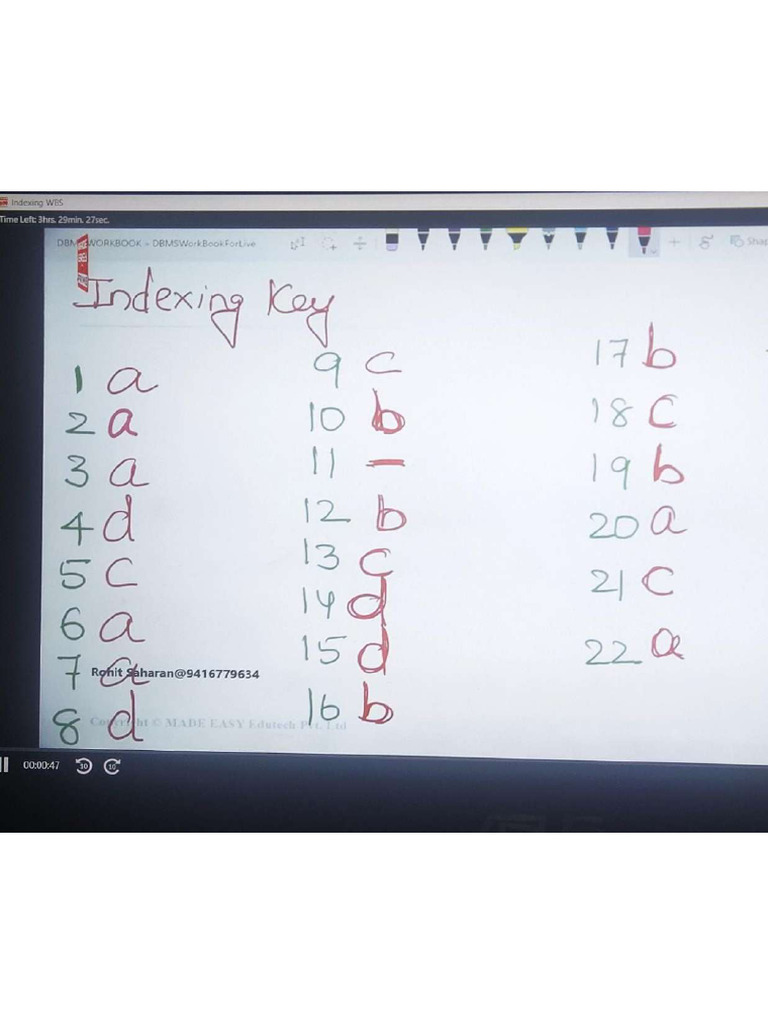 Indexing WBS
Time Left: 3hrs. 29min. 27sec.
DBMSWORKBOOK - DBMSWorkBookForLive
Shap
Indexing Key
1 a
2 a
3 a
4 d
5 c
6 a
7 a
Rohit Saharan@9416779634
8 d
Copyright © MADE EASY Edutech Pvt. Ltd
9 c
10 b
11 –
12 b
13 c
14 d
15 d
16 b
17 b
18 c
19 b
20 a
21 c
22 a
00:00:47
10
10